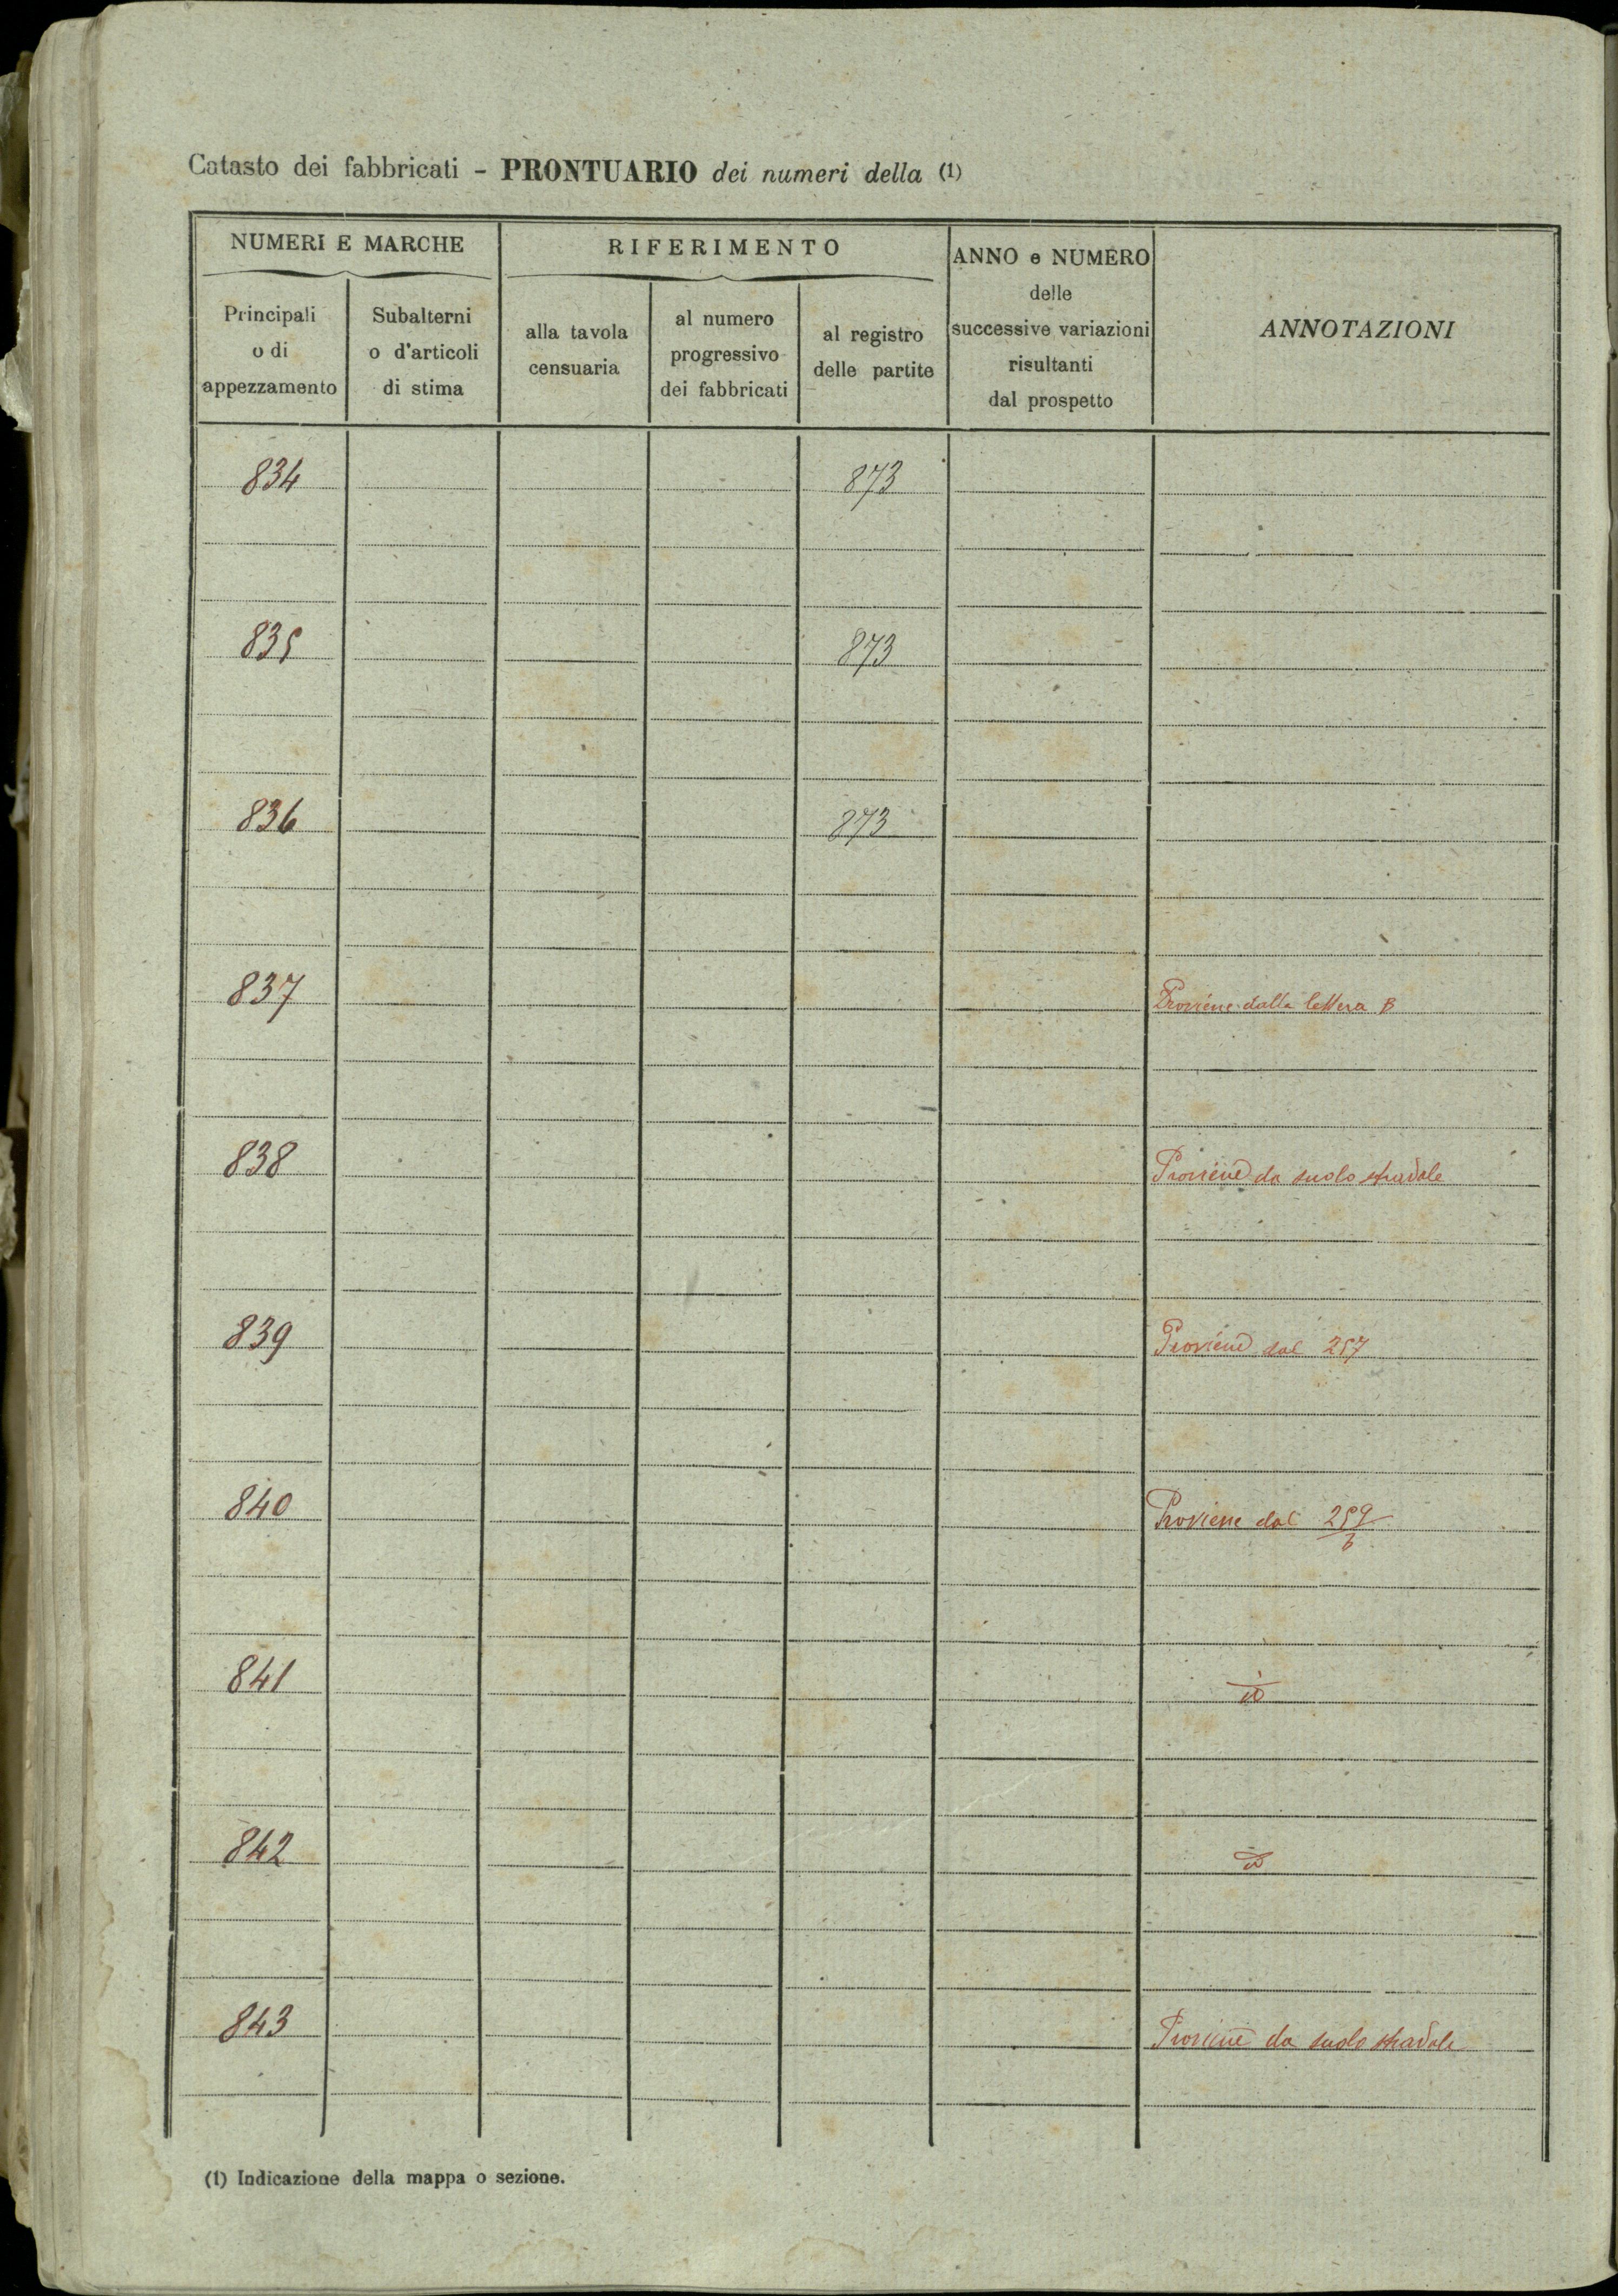 Catasto dei fabbricati - PRONTUARIO dei numeri della (1)
NUMERI E MARCHE
RIFERIMENTO
ANNO e NUMERO
delle
successive variazioni
risultanti
dal prospetto
ANNOTAZIONI
Principali
o di
appezzamento
Subalterni
o d'articoli
di stima
alla tavola
censuaria
al numero
progressivo
dei fabbricati
al registro
delle partite
834 873
835 873
836 873
837 Proviene dalla lettera B
838 Proviene da suolo stradale
839 Proviene dal 257
840 Proviene dal 259/b
841 id
842 id
843 Proviene da suolo stradale
(1) Indicazione della mappa o sezione.